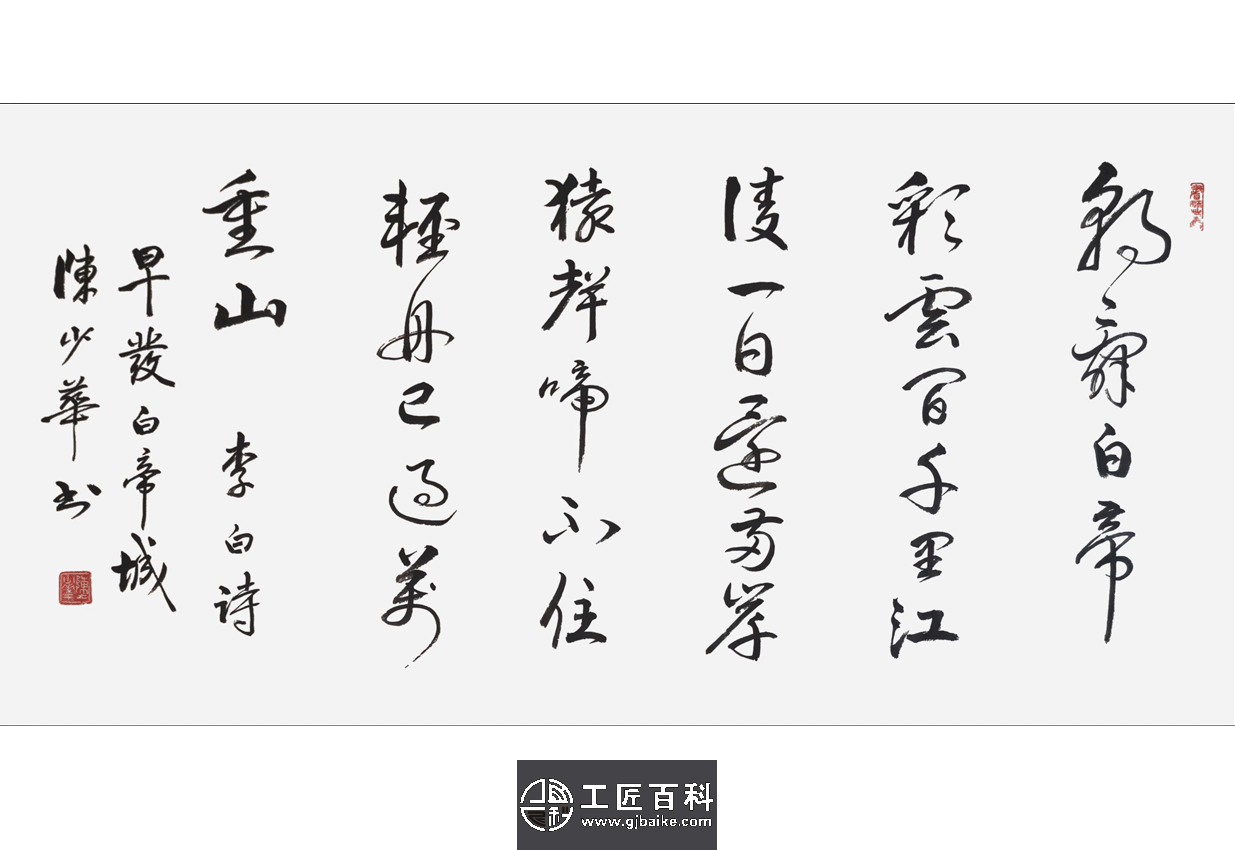 朝辭白帝
彩雲間千里江
陵一日還兩岸
猿聲啼不住
輕舟已過萬
重山 李白诗
早發白帝城
陳少華书
工匠百科
www.gjbaike.com